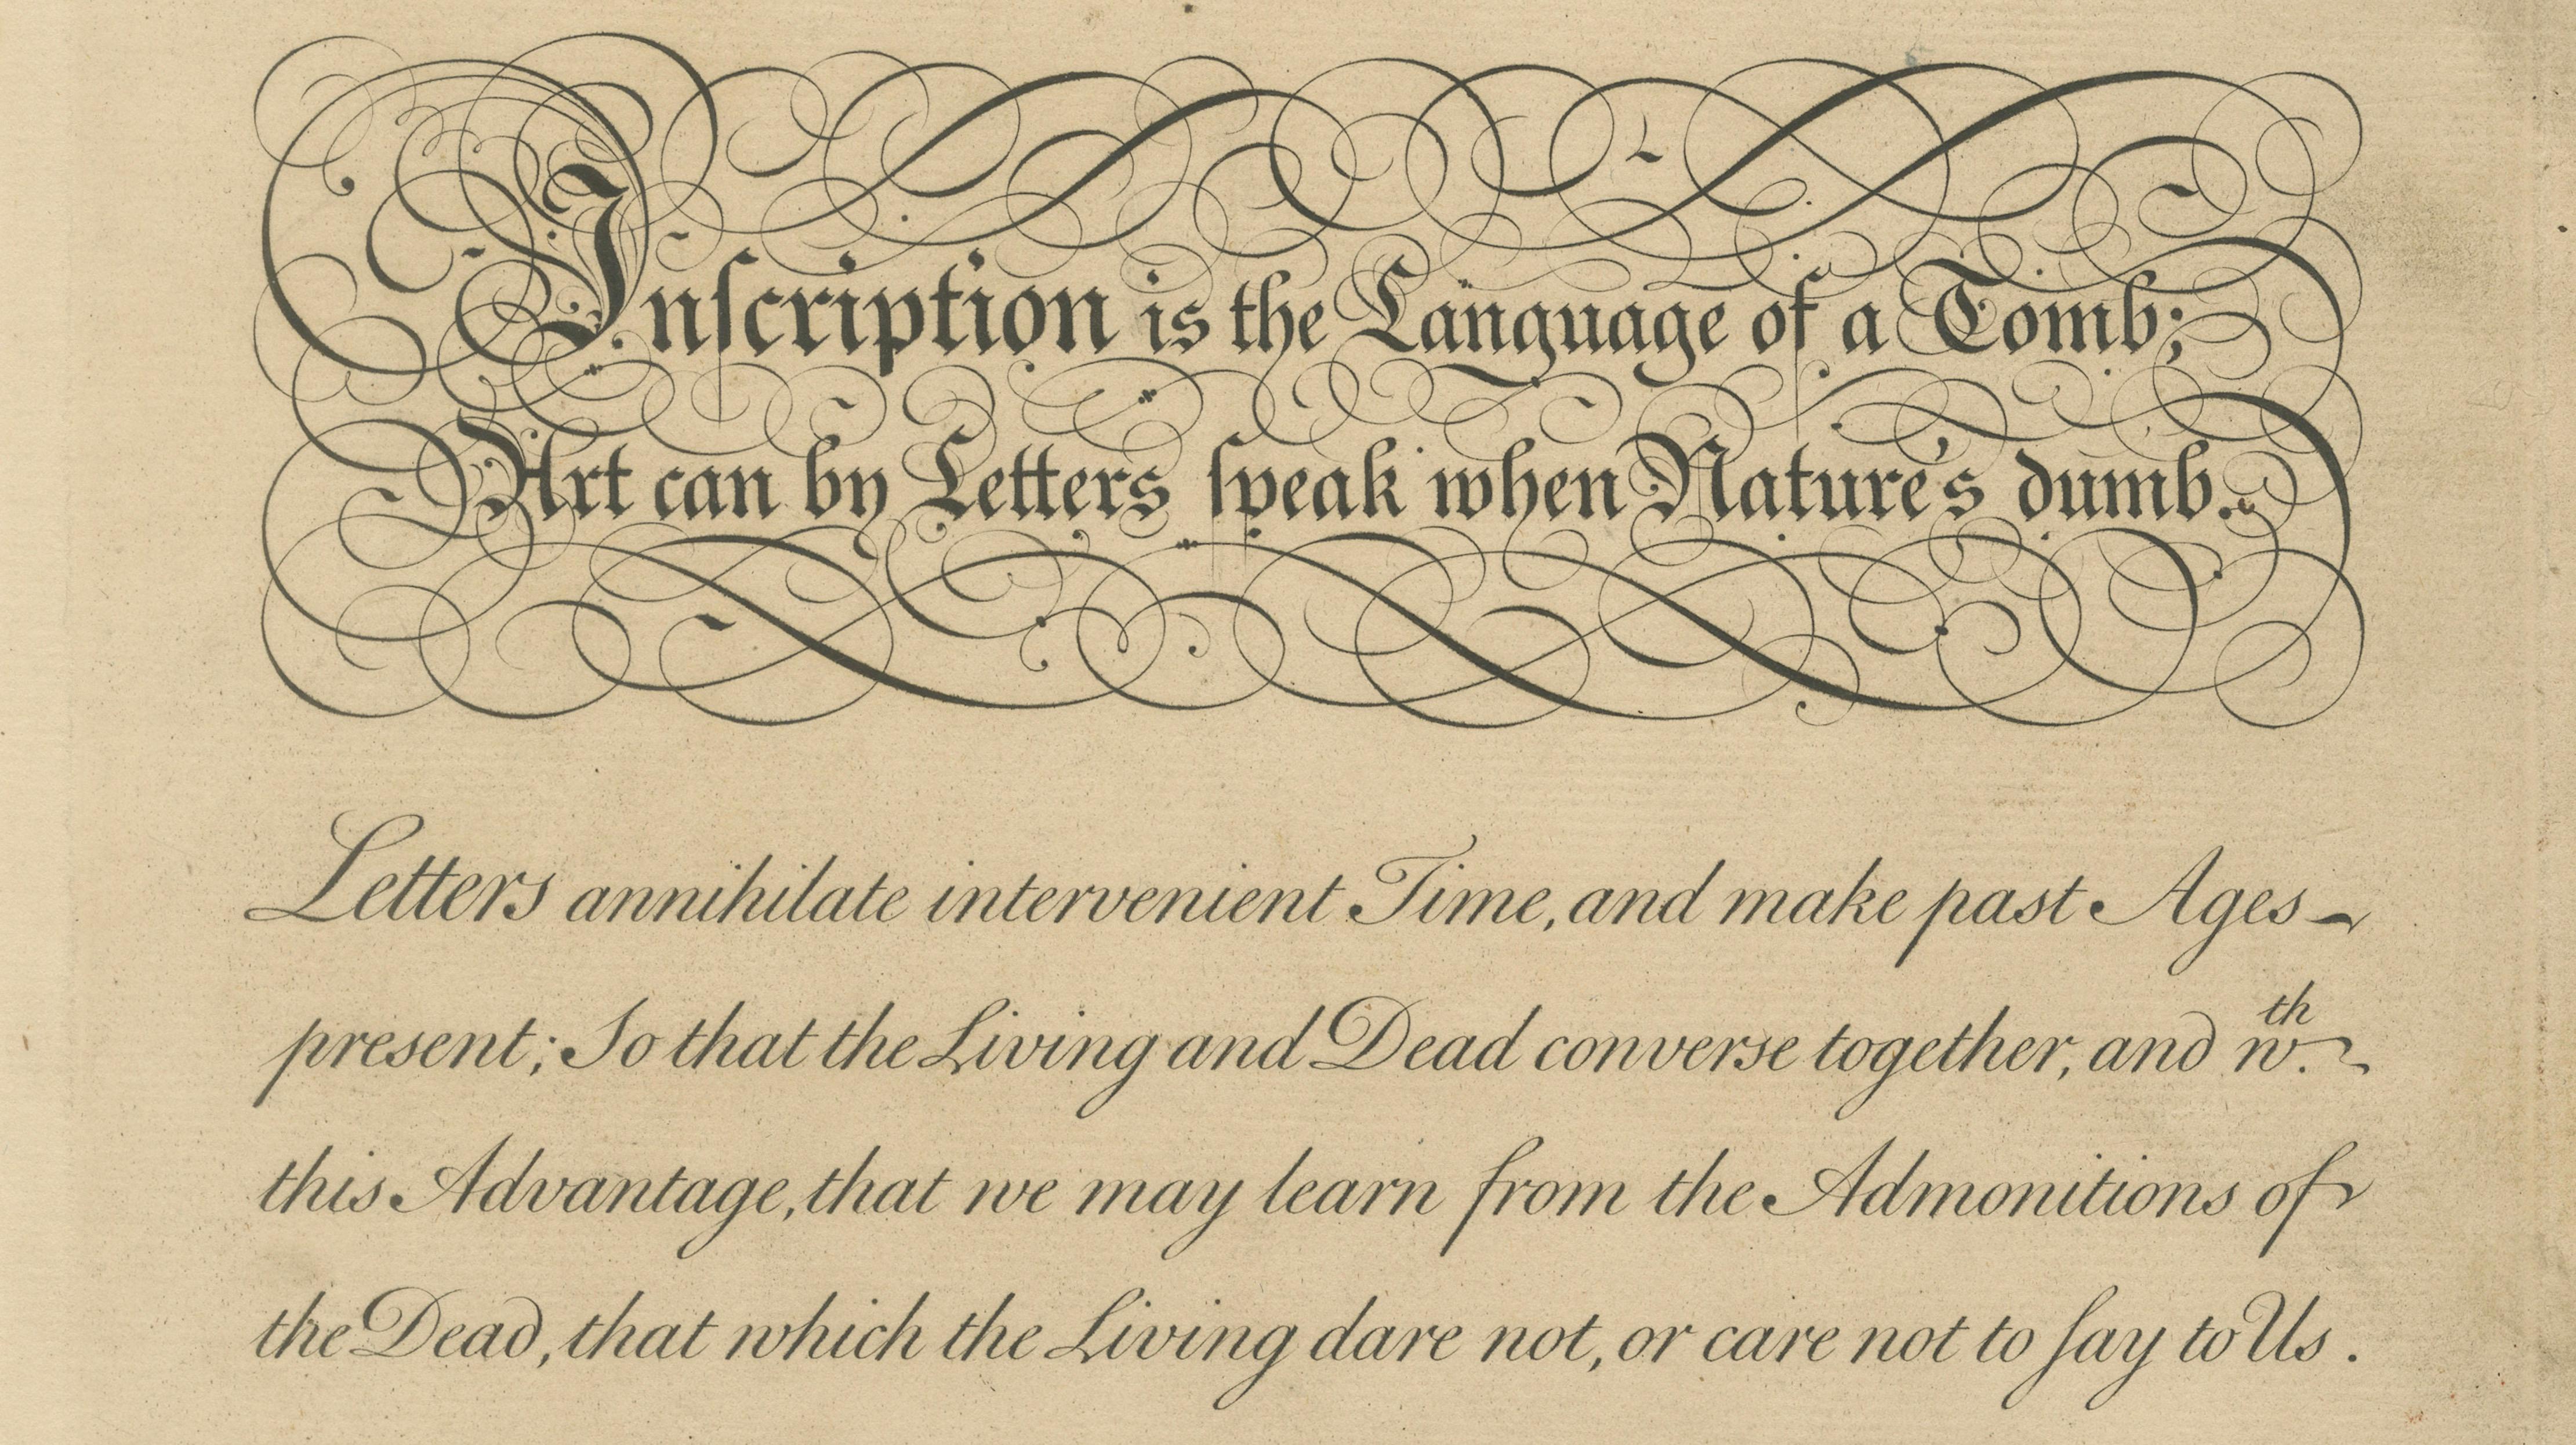 Inſcription is the Language of a Tomb;
Art can by Letters ſpeak when Nature's dumb.
Letters annihilate intervenient Time, and make past Ages
present; So that the Living and Dead converse together, and wth.
this Advantage, that we may learn from the Admonitions of
the Dead, that which the Living dare not, or care not to ſay to Us.